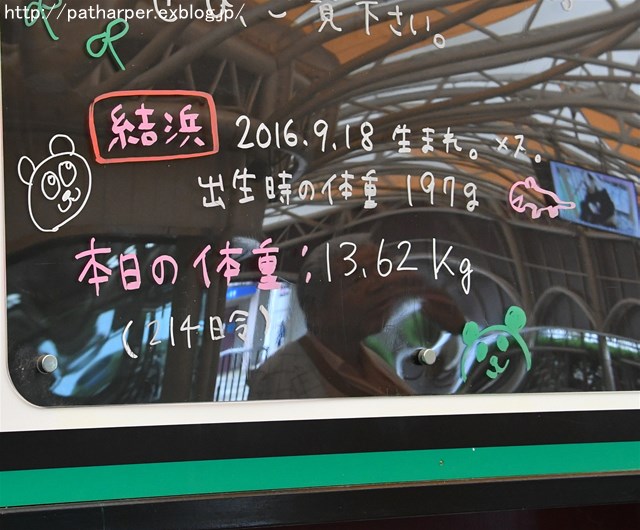 http://patharper.exblog.jp/
一見下さい。
結浜 2016.9.18 生まれ。メス。
出生時の体重 197g
本日の体重：13.62 Kg
(214日令)